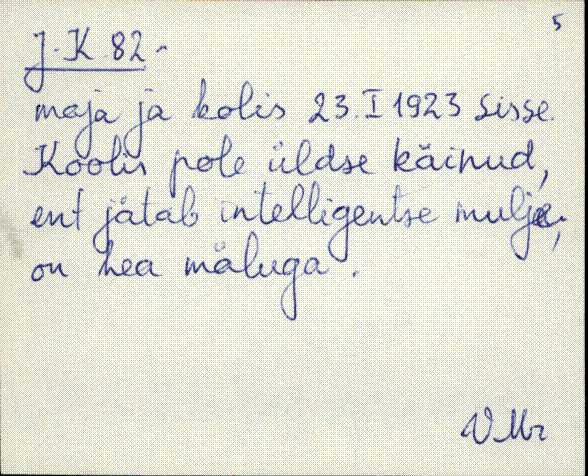 5
J.K. 82-
maja ja kolis 23.I 1923 sisse.
Koolis pole üldse käinud,
ent jätab intelligentse mulje,
on hea mäluga.
VMr